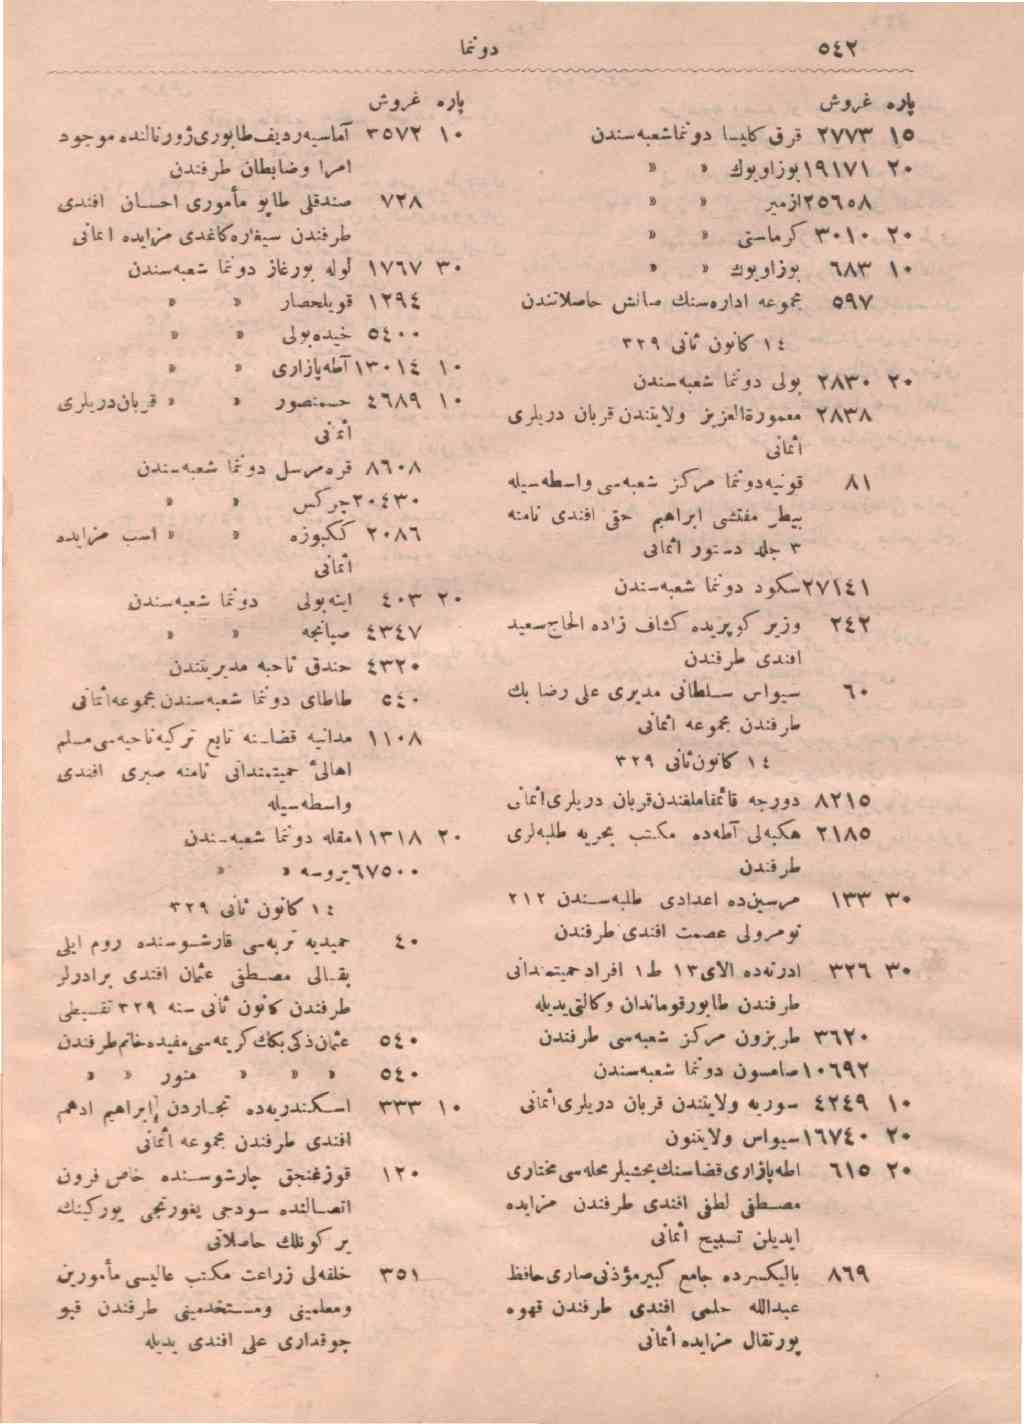 ٥٤٢
دوننما
پاره غروش
١٥ ٢٧٧٣ قرق كليسا دوننما شعبه‌سندن
٢٠ ١٩١٧١ بوزاويوك » »
٢٥٦٥٨ ازمير » »
٢٠ ٣٠١٠ كرماستى » »
١٠ ٦٨٣ بوزاويوك » »
٥٩٧ مجموعه اداره‌سنك صاتش حاصلاتندن
١٤ كانون ثانى ٣٢٩
٢٠ ٢٨٣٠ بولى دوننما شعبه‌سندن
٢٨٣٨ معمورةالعزيز ولايتندن قربان دريلرى
اثمانى
٨١ قونيه دوننما مركز شعبه‌سى واسطه‌سيله
بيطر مفتشى ابراهيم حقى افندى نامنه
٣ جلد دستور اثمانى
٢٧١٤١ سكود دوننما شعبه‌سندن
٢٤٢ وزير كوپريده كشاف زاده الحاج سعيد
افندى طرفندن
٦٠ سيواس سلطانى مديرى على رضا بك
طرفندن مجموعه اثمانى
١٤ كانون ثانى ٣٢٩
٨٢١٥ دورجه قائمقاملغندن قربان دريلرى اثمانى
٢١٨٥ هكبه‌لى آطه‌ده مكتب بحريه طلبه‌لرى
طرفندن
٣٠ ١٣٣ مرسين‌ده اعدادى طلبه‌سندن ٢١٢
نومرولى عصمت افندى طرفندن
٣٠ ٣٢٦ ادرنه‌ده الاى ١٣ ط ١ افراد حميتمندانى
طرفندن طابور قوماندان وكالتى يديله
٣٦٢٠ طربزون مركز شعبه‌سى طرفندن
١٠٦٩٢ صامسون دوننما شعبه‌سندن
١٠ ٤٢٤٩ سوريه ولايتندن قربان دريلرى اثمانى
٢٠ ١٦٧٤٠ سيواس ولايتنون
٢٠ ٦١٥ اطه‌پازارى قضاسنك يخشيلر محله‌سى مختارى
مصطفى لطفى افندى طرفندن مزايده
ايديلن تسبيح اثمانى
٨٦٩ باليكسرده جامع كبير مؤذنى صارى حافظ
عبدالله حلمى افندى طرفندن قهوه
پورتقال مزايده اثمانى
پاره غروش
١٠ ٣٥٧٢ آماسيه رديف طابورى ژورنالنده موجود
امرا وضابطان طرفندن
٧٢٨ صندقلى طاپو مأمورى احسان افندى
طرفندن سيغاره كاغدى مزايده اثمانى
٣٠ ١٧٦٧ لوله بورغاز دوننما شعبه‌سندن
١٢٩٤ قويلحصار » »
٥٤٠٠ خيده‌بولى » »
١٠ ١٣٠١٤ آطه‌پازارى » »
١٠ ٤٦٨٩ حسمنصور » » قربان دريلرى
اثمانى
٨٦٠٨ قره‌مرسل دوننما شعبه‌سندن
٢٠٤٣٠ چركس » »
٢٠٨٦ ككبوزه » » اسب مزايده
اثمانى
٢٠ ٤٠٣ اينه‌بولى دوننما شعبه‌سندن
٤٣٤٧ صپانجه » »
٤٣٢٠ خندق ناحيه مديريتندن
٥٤٠ طاطاى دوننما شعبه‌سندن مجموعه اثمانى
١١٠٨ مدانيه قضاسنه تابع تركيه ناحيه‌سى مسلم
اهالئ حميتمندانى نامنه صبرى افندى
واسطه‌سيله
٢٠ ١١٣١٨ مغله دوننما شعبه‌سندن
٦٧٥٠٠ بروسه » »
١٤ كانون ثانى ٣٢٩
٤٠ حميديه تربه‌سى قارشوسنده روم ايلى
بقالى مصطفى عثمان افندى برادرلر
طرفندن كانون ثانى سنه ٣٢٩ تقسيطى
٥٤٠ عثمان ذكى بكك كريمه‌سى مفيده خانم طرفندن
٥٤٠ » » » منور » »
١٠ ٣٣٣ اسكندريه‌ده تجاردن ابراهيم ادهم
افندى طرفندن مجموعه اثمانى
١٢٠ قوزغنجق چارشوسنده خاص فرون
اتصالنده سودجى يغورتجى يوركينك
بر كونلك حاصلاتى
٣٥١ خلقه‌لى زراعت مكتب عاليسى مأمورين
ومعلمينى ومستخدمينى طرفندن قپو
چوقدارى على افندى يديله